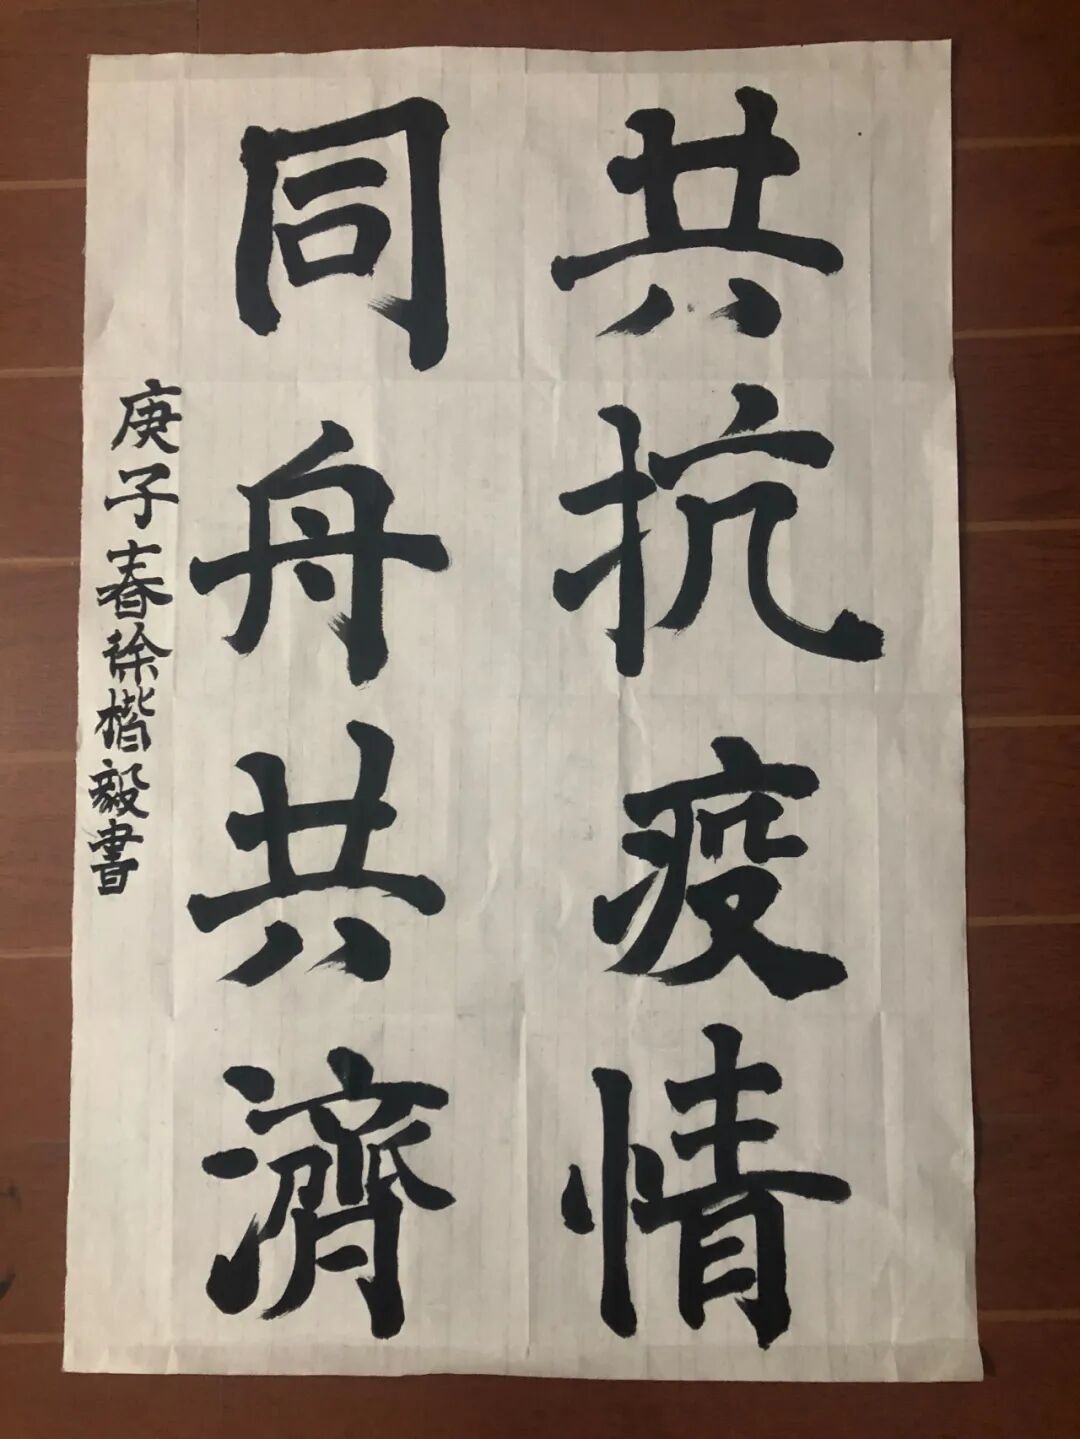 共抗疫情
同舟共濟
庚子春徐楷毅書